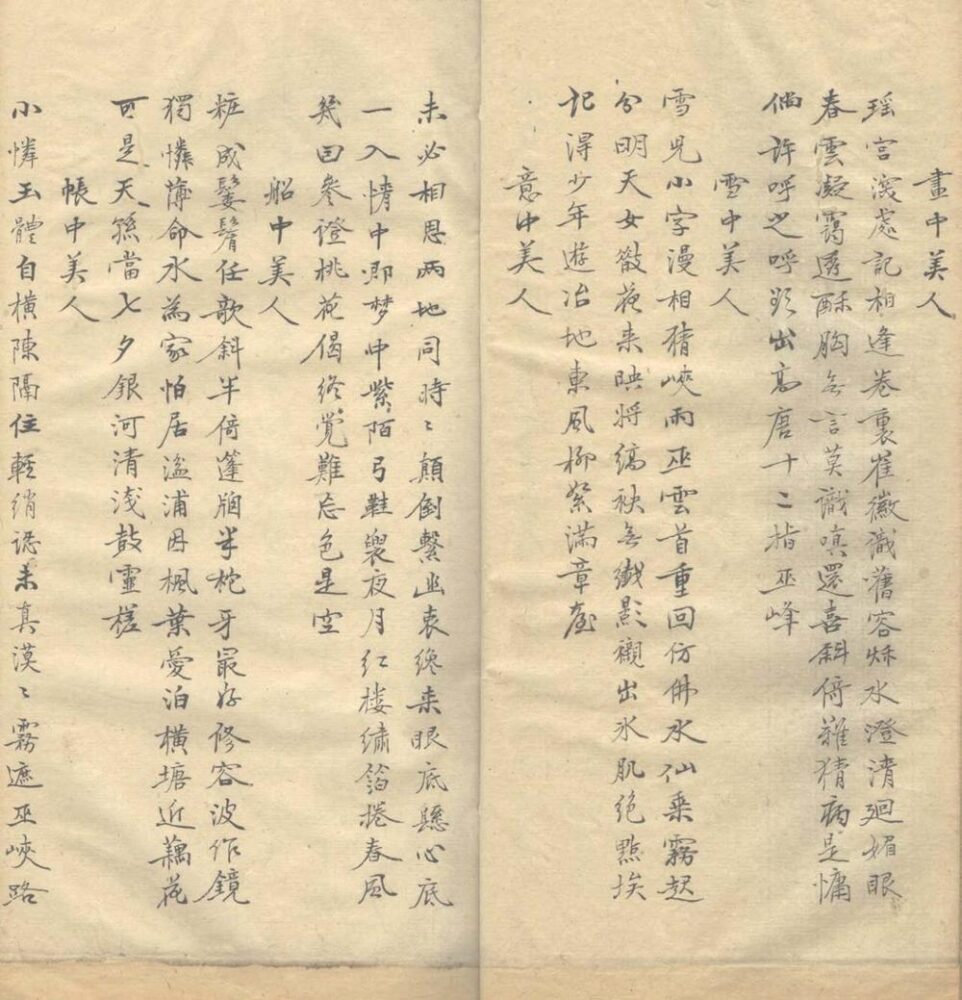 畫中美人
瑶宮深處記相逢卷裏崔徽識舊容秌水澄清廻媚眼
春雲凝靄透酥胸無言莫識嗔還喜斜倚難猜病是慵
倘許呼之呼欲出高唐十二指巫峰
雪中美人
雪児小字漫相猜峽雨巫雲首重回仿佛水仙乘霧起
分明天女散花来映将縞袂無纖影襯出氷肌絶點埃
記得少年遊冶地東風柳絮滿章臺
意中美人
未必相思兩地同時〻顛倒繫幽衷纔来眼底懸心底
一入情中即梦中紫陌弓鞋褭夜月红楼繡箔捲春風
幾回參證桃花偈終覺難忘色是空
船中美人
粧成鬟髻任歌斜半倚篷牕半枕牙最好修容波作鏡
獨憐薄命水為家怕居湓浦因楓葉愛泊橫塘近藕花
可是天孫當七夕銀河清淺鼓靈槎
帳中美人
小憐玉體自橫陳隔住輕綃認未真漠〻霧遮巫峽路